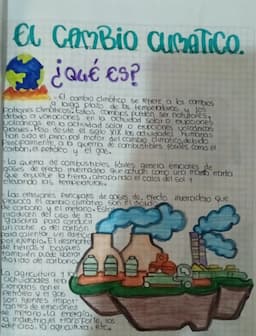 EL CAMBIO CLIMATICO.
¿QUÉ ES?
- El cambio climático se refiere a los cambios
a largo plazo de las temperaturas y los
patrones climáticos. Estos cambios pueden ser naturales,
debido a variaciones en la actividad solar o erupciones
volcánicas
han sido el principal motor del cambio climático, debido
principalmente, a la quema de combustibles fósiles como el
carbón, el petróleo y el gas.
- La quema de combustibles fósiles genera emisiones de
gases de efecto invernadero que actúan como una manta
que envuelve a la tierra, atrapando el calor del sol y
elevando las temperaturas.
- Las emisiones principales de gases de efecto invernadero que
provoca el cambio climático son el dióxido
de carbono y el metano. Estos
producen del uso de la
gasolina para conducir
un coche o del carbón
para calentar un edificio
por ejemplo. El desmonte
de tierras y bosques
también puede liberar
dióxido de carbono.
La agricultura y las
actividades
cionadas con el
petróleo y el gas
son fuentes impor-
tantes de emisiones
de metano. La energía,
la industria, el transporte, los
edificios, la agricultura, etc.